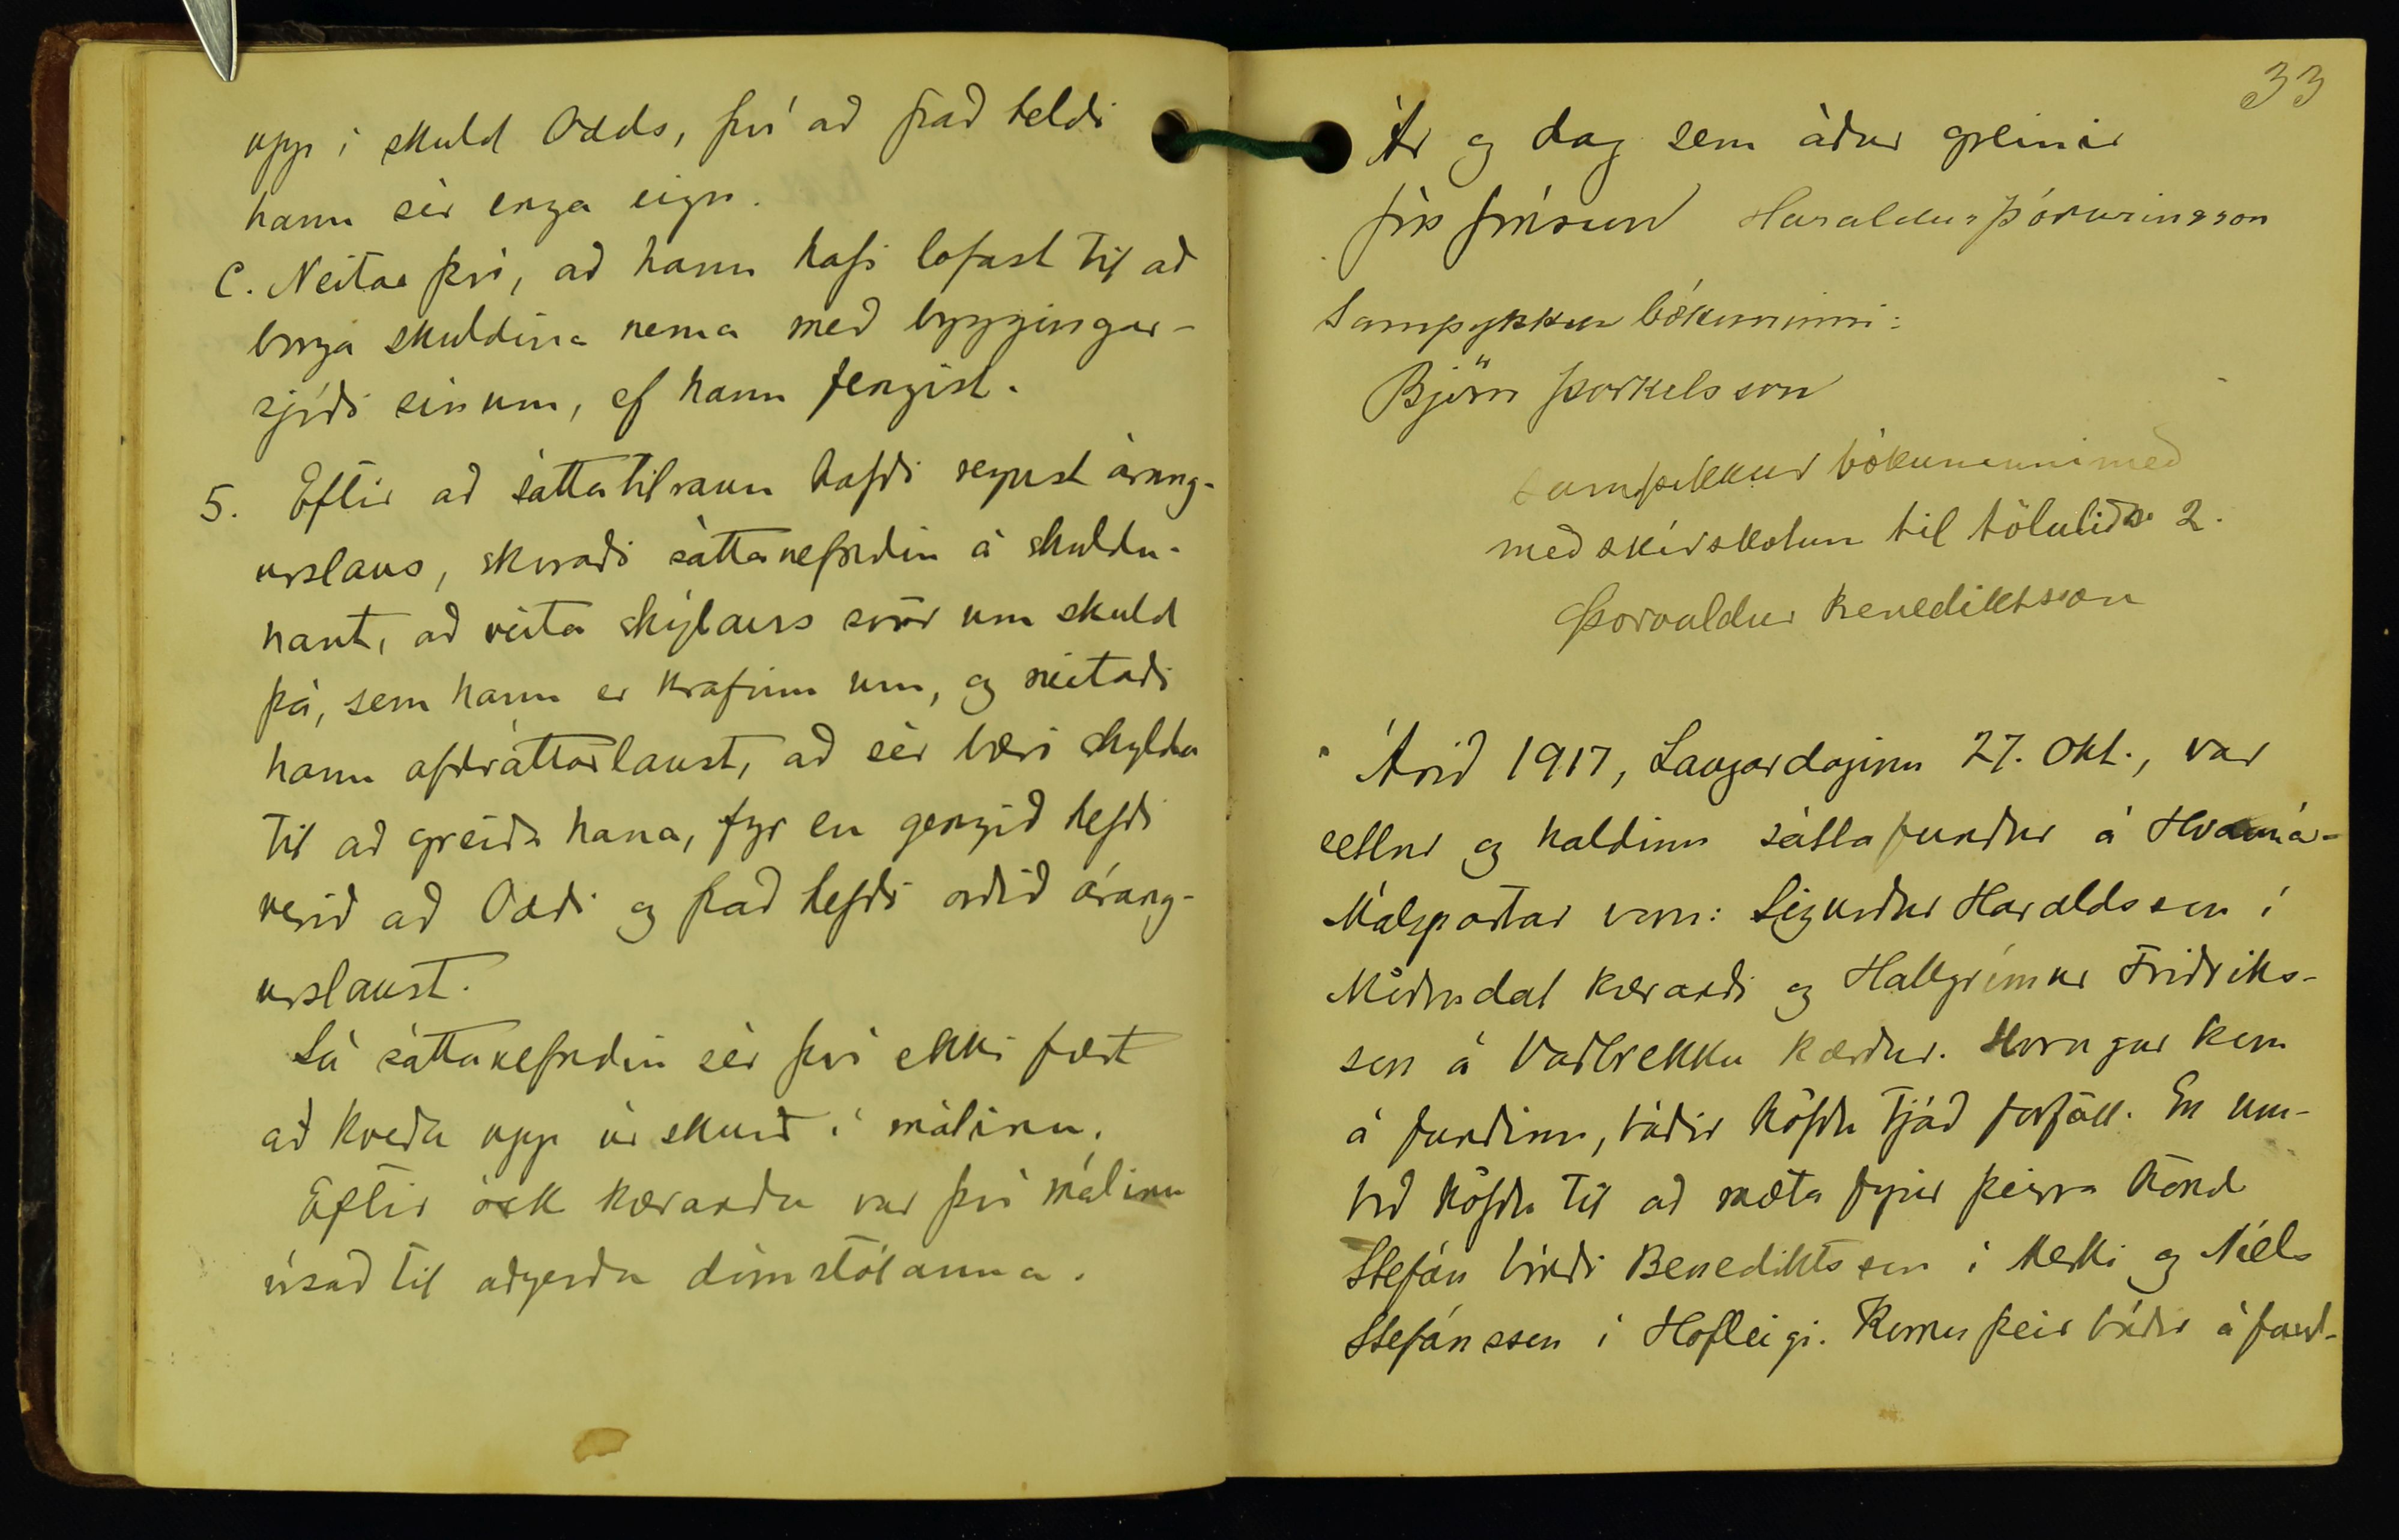 upp í skuld Odds, því að það teldi
hann sér enga eign.
C. Neitar því, að hann hafi lofast til að
borga skuldina nema með byggingar-
sjóði sínum, ef hann fengist.
5. Eftir að sáttatilraun hafði reynst árang-
urslaus, skoraði sáttanefndin á skuldu-
naut, að veita skýlaus svör um skuld
þá, sem hann er krafinn um, og neitaði
hann afdráttarlaust, að sér bæri skylda
til að greiða hana, fyr en gengið hefði
verið að Oddi og það hefði orðið árang-
urslaust.
Sá sáttanefndin sér því ekki fært
að kveða upp úrskurð í málinu.
Eftir ósk kæranda var því málinu
vísað til aðgerða dómstólanna.
33
Ár og dag sem áður greinir
Jón Jónsson Haraldur Þórarinsson
Samþykkur bókuninni:
Björn Þorkelsson
Samþikkur bókuninni með
með skírskotun til töluliðs 2.
Þorvaldur Benediktsson
Árið 1917, Laugardaginn 27. okt., var
settur og haldinn sáttafundur á Hvanná-
Málspartar voru: Sigurður Haraldsson í
Möðrudal kærandi og Hallgrímur Friðriks-
son á Vaðbrekku kærður. Hvorugur kom
á fundinn, báðir höfðu tjáð forföll. En um-
boð höfðu til að mæta fyrir þeirra hönd
Stefán bóndi Benediktsson í Merki og Níels
Stefánsson í Hofteigi. Komu þeir báðir á fund-